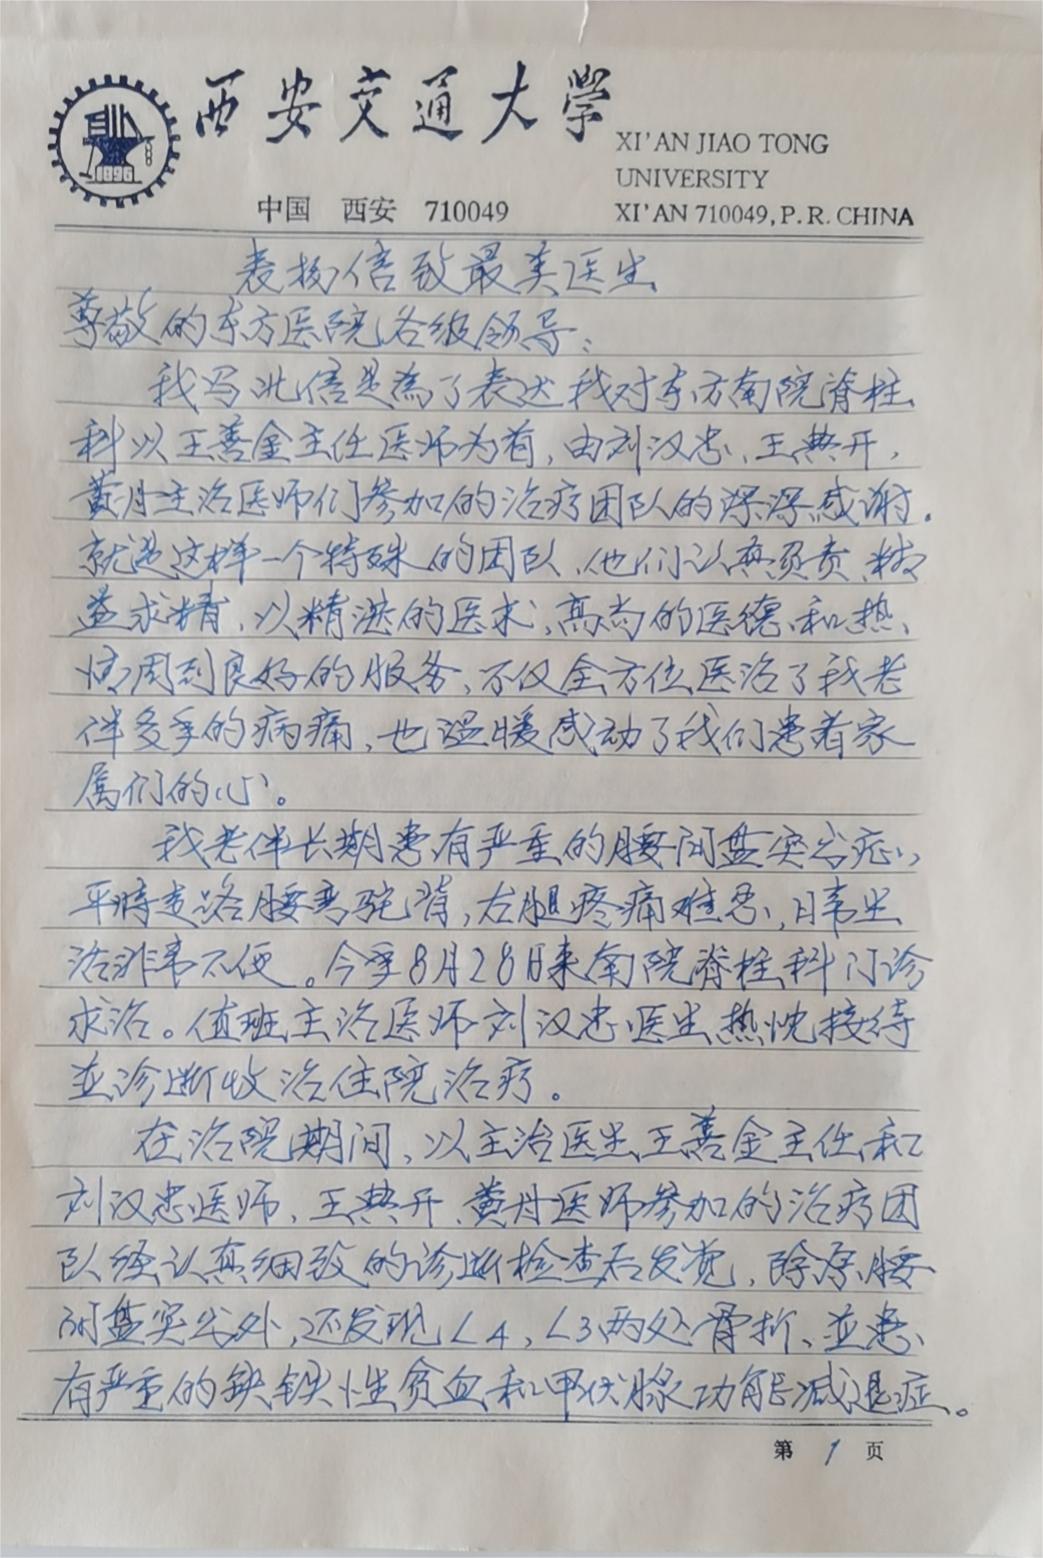 西安交通大学
XI'AN JIAO TONG
UNIVERSITY
中国 西安 710049
XI'AN 710049, P. R. CHINA
1896
表扬信致最美医生
尊敬的东方医院各级领导：
我写此信是為了表达我对东方南院脊柱
科以王善金主任医师为首，由刘汉忠、王典开，
黄丹主治医师们参加的治疗团队的深深感谢。
就是这样一个特殊的团队、他们认真负责、精
益求精，以精湛的医术、高尚的医德、和热
情周到良好的服务、不仅全方位医治了我老
伴多年的病痛，也温暖感动了我们患者家
属们的心。
我老伴长期患有严重的腰间盘突出症，
平時走路腰弯驼背，右腿疼痛难忍，日常生
活非常不便。今年8月28日来南院脊柱科门诊
求治。值班主治医师刘汉忠医生热忱接待
並诊断收治住院治疗。
在治院期间，以主治医生王善金主任和
刘汉忠医师、王典开、黄丹医师参加的治疗团
队经认真细致的诊断检查后发觉，除原腰
间盘突出外，还发现L4，L3两处骨折、並患
有严重的缺铁性贫血和甲状腺功能减退症。
第 1 页